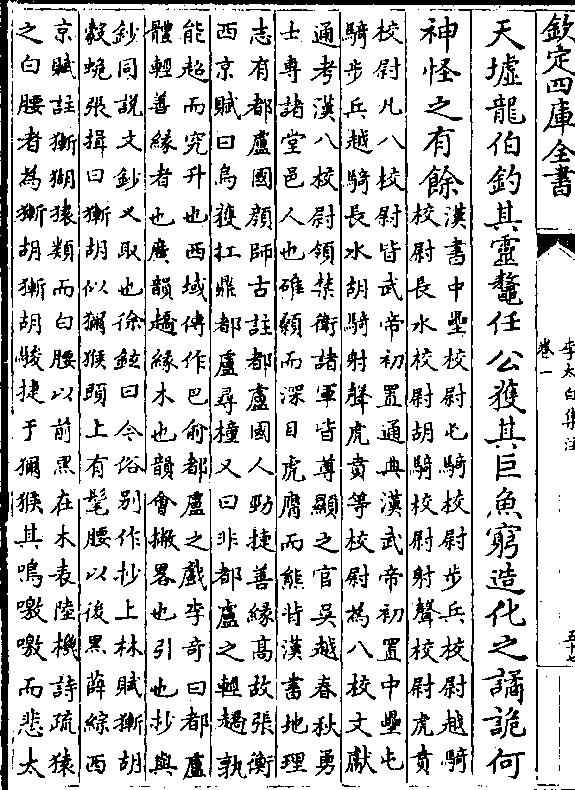 欽定四庫全書
李太白集注
卷一
五十七
天墟龍伯釣其靈鼇任公獲其巨魚窮造化之譎詭何
神怪之有餘
漢書中壘校尉屯騎校尉步兵校尉越騎
校尉長水校尉胡騎校尉射聲校尉虎賁
校尉凡八校尉皆武帝初置通典漢武帝初置中壘屯
騎步兵越騎長水胡騎射聲虎賁等校尉為八校文獻
通考漢八校尉領禁衛諸軍皆尊顯之官吳越春秋勇
士專諸堂邑人也碓顙而深目虎膺而熊背漢書地理
志有都盧國顔師古註都盧國人勁捷善緣髙故張衡
西京賦曰烏獲扛鼎都盧尋橦又曰非都盧之輕趫孰
能超而究升也西域傳作巴俞都盧之戲李奇曰都盧
體輕善緣者也廣韻趫緣木也韻會撇畧也引也抄與
鈔同說文鈔叉取也徐鉉曰今俗別作抄上林賦獑胡
縠蛫張揖曰獑胡似獼猴頭上有髦腰以後黑薛綜西
京賦註獑猢猿類而白腰以前黑在木表陸機詩疏猿
之白腰者為獑胡獑胡駿捷于獼猴其鳴噭噭而悲太